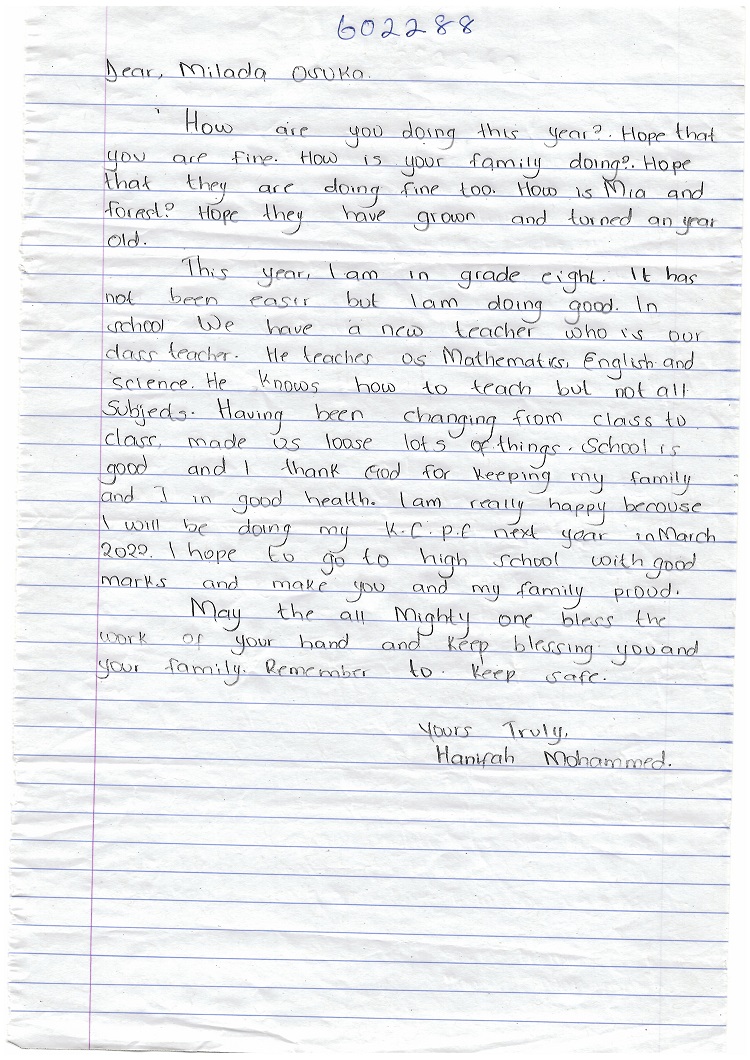 602288
Dear, Milada Osuka.
How are you doing this year?. Hope that
you are fine. How is your family doing?. Hope
that they are doing fine too. How is Mia and
forest? Hope they have grown and turned an year
old.
This year, I am in grade eight. It has
not been easir but I am doing good. In
school We have a new teacher who is our
class teacher. He teaches us Mathematics, English and
science. He knows how to teach but not all
Subjects. Having been changing from class to
class, made us loose lots of things. School is
good and I thank God for keeping my family
and I in good health. I am really happy becouse
I will be doing my K.C.P.E next year in March
2022. I hope to go to high school with good
marks and make you and my family proud.
May the all Mighty one bless the
work of your hand and keep blessing you and
your family. Remember to keep safe.
Yours Truly,
Hanifah Mohammed.